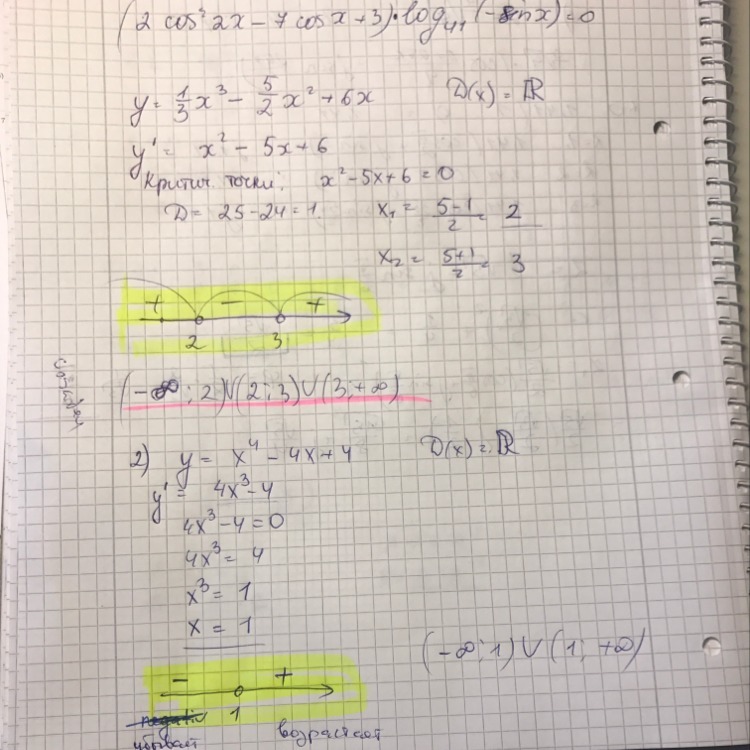 (2 cos² 2x - 7 cos x + 3) · log₄₁ (- sin x) = 0
y = 1/3 x³ - 5/2 x² + 6x D(x) = ℝ
y' = x² - 5x + 6
Критич. точки: x² - 5x + 6 = 0
D = 25 - 24 = 1 x₁ = (5-1)/2 = 2
x₂ = (5+1)/2 = 3
+ - +
2 3
(-∞; 2) ∪ (2; 3) ∪ (3; +∞)
2) y = x⁴ - 4x + 4 D(x) = ℝ
y' = 4x³ - 4
4x³ - 4 = 0
4x³ = 4
x³ = 1
x = 1
(-∞; 1) ∪ (1; +∞)
- +
1
убывает возрастает